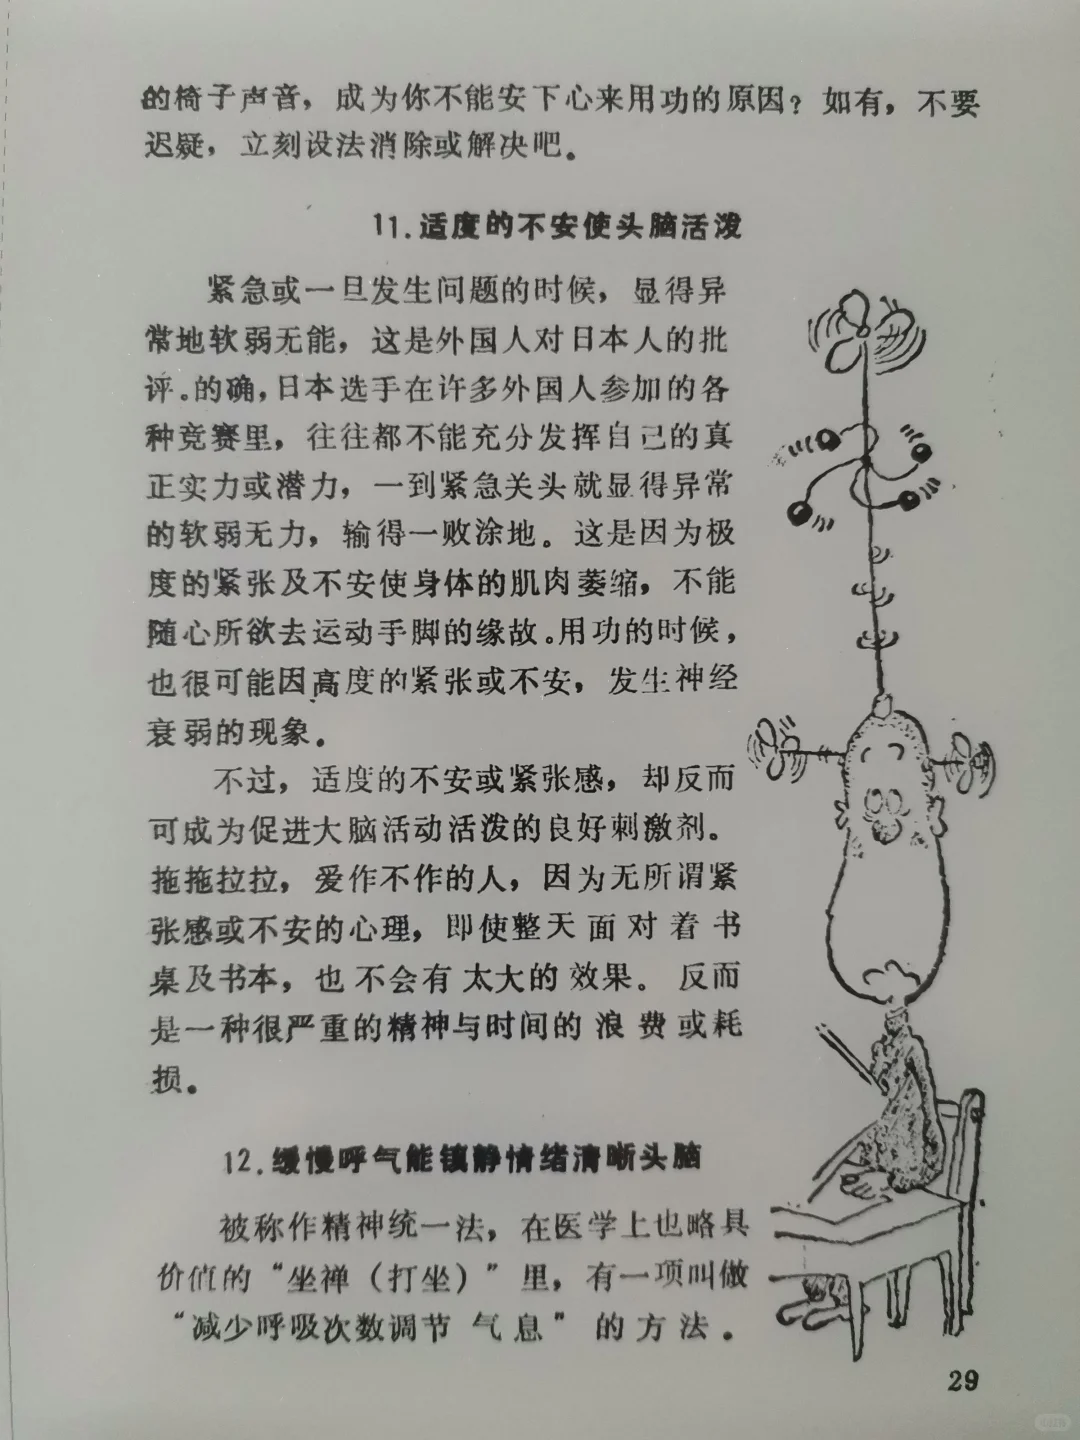 的椅子声音，成为你不能安下心来用功的原因？如有，不要
迟疑，立刻设法消除或解决吧。
11.适度的不安使头脑活泼
紧急或一旦发生问题的时候，显得异
常地软弱无能，这是外国人对日本人的批
评。的确，日本选手在许多外国人参加的各
种竞赛里，往往都不能充分发挥自己的真
正实力或潜力，一到紧急关头就显得异常
的软弱无力，输得一败涂地。这是因为极
度的紧张及不安使身体的肌肉萎缩，不能
随心所欲去运动手脚的缘故。用功的时候，
也很可能因高度的紧张或不安，发生神经
衰弱的现象。
不过，适度的不安或紧张感，却反而
可成为促进大脑活动活泼的良好刺激剂。
拖拖拉拉，爱作不作的人，因为无所谓紧
张感或不安的心理，即使整天面对着书
桌及书本，也不会有太大的效果。反而
是一种很严重的精神与时间的浪费或耗
损。
12.缓慢呼气能镇静情绪清晰头脑
被称作精神统一法，在医学上也略具
价值的“坐禅（打坐）”里，有一项叫做
“减少呼吸次数调节气息”的方法．
29